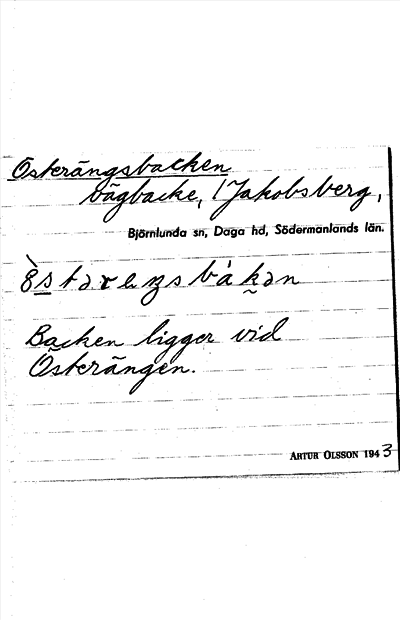 Österängsbacken
vägbacke, i Jakobsberg,
Björnlunda sn, Daga hd, Södermanlands län.
Backen ligger vid
Österängen.
ARTUR OLSSON 1943